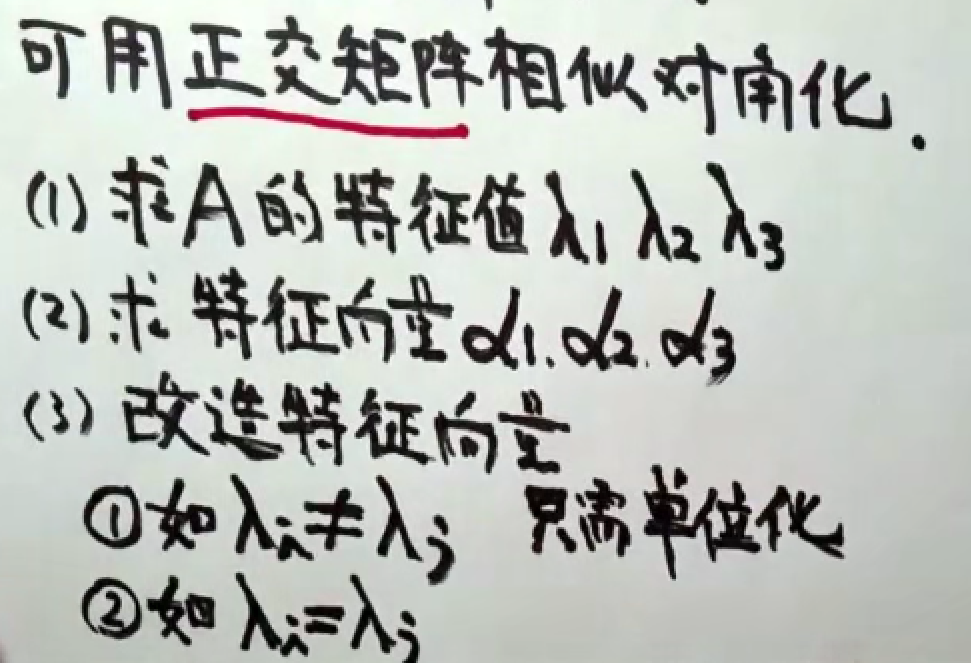 可用正交矩阵相似对角化.
(1) 求A的特征值 λ1 λ2 λ3
(2) 求 特征向量 α1. α2. α3
(3) 改造特征向量
① 如 λi≠λj 只需单位化
② 如 λi=λj